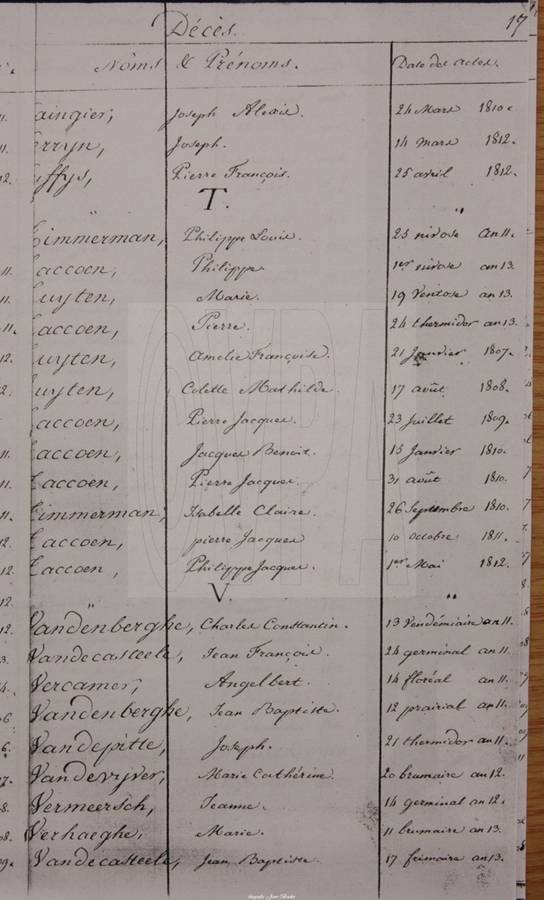 Décès. 17
Noms & Prénoms. Date des actes.
aingier, Joseph Alexis. 24 Mars 1810.
erryn, Joseph. 14 mars 1812.
uffys, Pierre François. 25 avril 1812.
T. "
Timmerman, Philippe Louis. 23 nivose an 11.
Taccoen, Philippe 1er nivose an 13.
Tuyten, Marie. 19 Ventose an 13.
Taccoen, Pierre. 24 thermidor an 13.
Tuyten, Amelie Françoise. 21 Janvier 1807.
Tuyten, Colette Mathilde. 17 août 1808.
Taccoen, Pierre Jacques. 23 Juillet 1809.
Taccoen, Jacques Benoit. 15 Janvier 1810.
Taccoen, Pierre Jacques. 31 août 1810.
Timmerman, Isabelle Claire. 26 Septembre 1810.
Taccoen, pierre Jacques 10 octobre 1811.
Taccoen, Philippe Jacques. 1er Mai 1812.
" V. "
Vandenberghe, Charles Constantin. 13 Vendémiaire an 11.
Vandecasteele, Jean François. 24 germinal an 11.
Vercamer, Angelbert. 14 floréal an 11.
Vandenberghe, Jean Baptiste. 12 prairial an 11.
Vandepitte, Joseph. 21 thermidor an 11.
Vandevyver, Marie Cathérine. 20 brumaire an 12.
Vermeersch, Jeanne. 14 germinal an 12.
Verhaeghe, Marie. 11 brumaire an 13.
Vandecasteele, Jean Baptiste. 17 frimaire an 13.